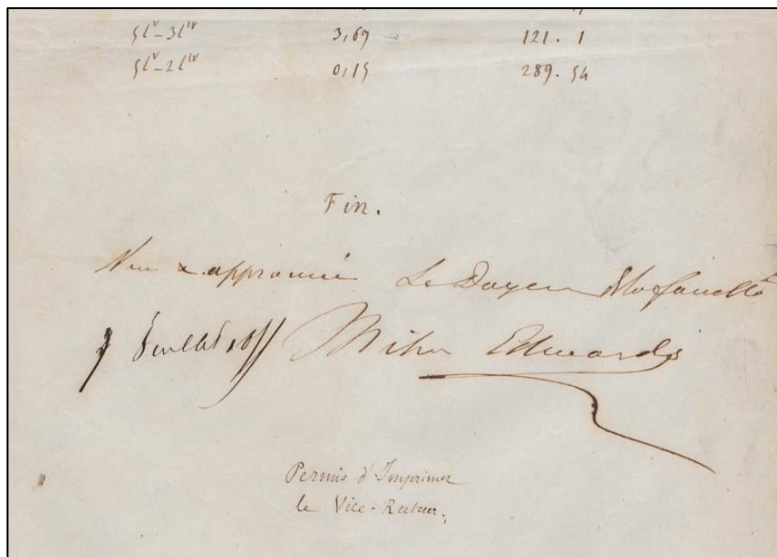 5lⱽ-3lᴵⱽ 3,69 – 121. 1
5lⱽ-2lᴵⱽ 0,15 289. 54
Fin.
Vu & approuvée Le Doyen de la faculté
Juillet Milne Edwards
Permis d'Imprimer
le Vice-Recteur.